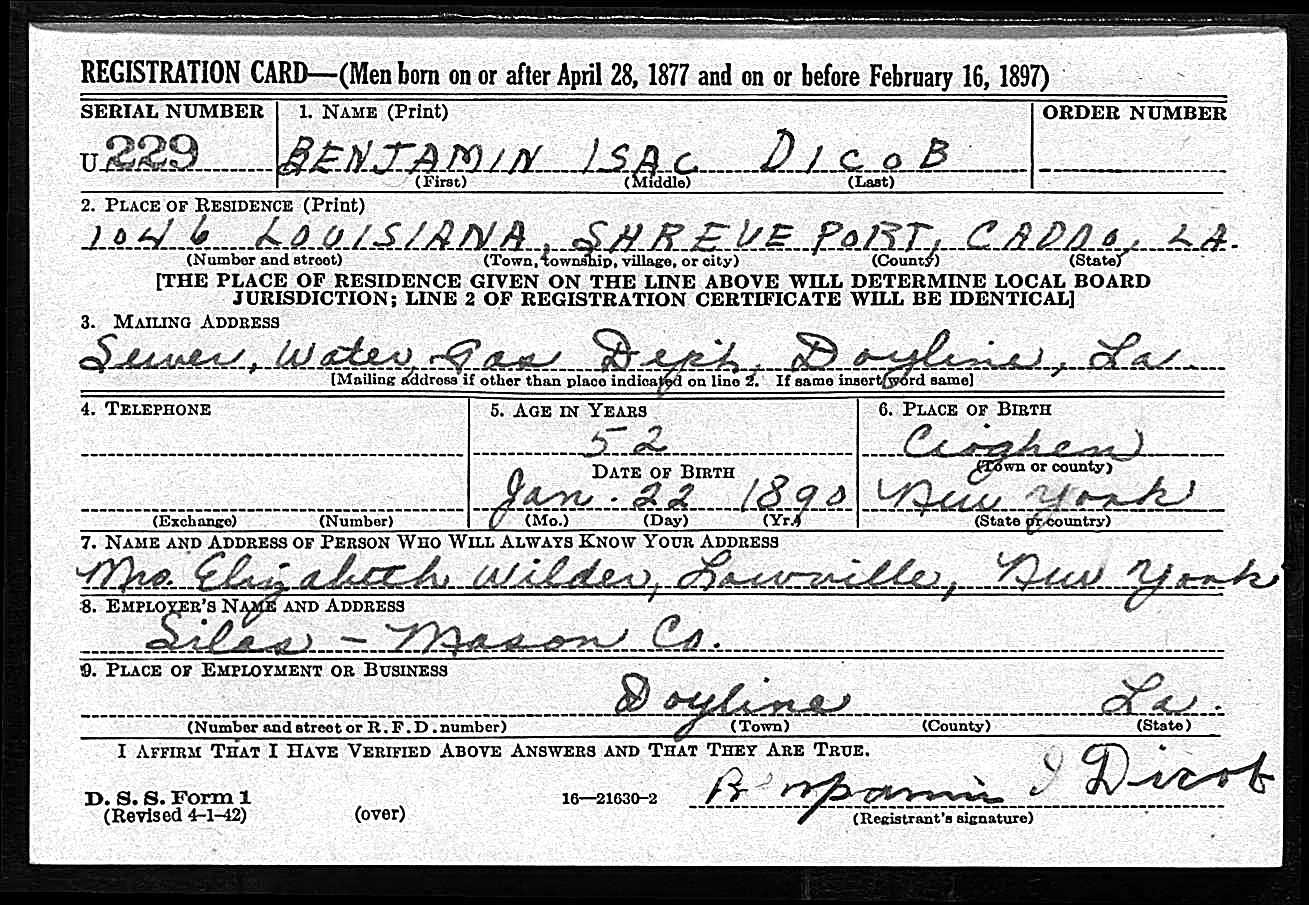 REGISTRATION CARD—(Men born on or after April 28, 1877 and on or before February 16, 1897)
SERIAL NUMBER 1. NAME (Print) ORDER NUMBER
U 229 BENJAMIN ISAC DICOB
(First) (Middle) (Last)
2. PLACE OF RESIDENCE (Print)
1046 LOUISIANA, SHREVEPORT, CADDO, LA.
(Number and street) (Town, township, village, or city) (County) (State)
[THE PLACE OF RESIDENCE GIVEN ON THE LINE ABOVE WILL DETERMINE LOCAL BOARD
JURISDICTION; LINE 2 OF REGISTRATION CERTIFICATE WILL BE IDENTICAL]
3. MAILING ADDRESS
Sewer, Water, Gas Dept, Doyline, La.
[Mailing address if other than place indicated on line 2. If same insert word same]
4. TELEPHONE 5. AGE IN YEARS 6. PLACE OF BIRTH
52 Croghen
DATE OF BIRTH (Town or county)
Jan. 22 1890 New York
(Exchange) (Number) (Mo.) (Day) (Yr.) (State or country)
7. NAME AND ADDRESS OF PERSON WHO WILL ALWAYS KNOW YOUR ADDRESS
Mrs. Elizabeth Wilder, Lowville, New York
8. EMPLOYER'S NAME AND ADDRESS
Silas - Mason Co.
9. PLACE OF EMPLOYMENT OR BUSINESS
Doyline La.
(Number and street or R. F. D. number) (Town) (County) (State)
I AFFIRM THAT I HAVE VERIFIED ABOVE ANSWERS AND THAT THEY ARE TRUE.
Benjamin I Dicob
D. S. S. Form 1 16—21630-2
(Revised 4-1-42) (over) (Registrant's signature)